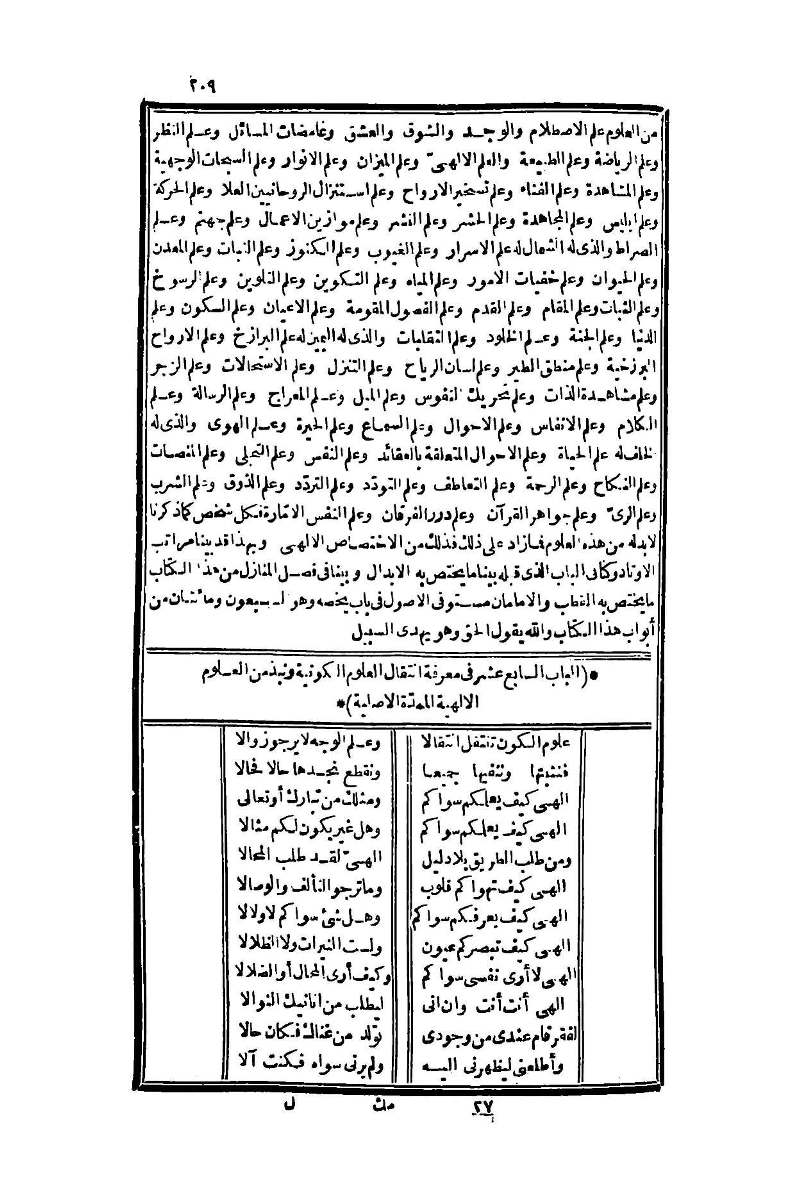 ٢٠٩
من العلوم علم الاصطلام والوجد والشوق والعشق وغامضات المسائل وعلم النظر
وعلم الرياضة وعلم الطبيعة والعلم الالهىّ وعلم الميزان وعلم الانوار وعلم السبحات الوجهية
وعلم المشاهدة وعلم الفناء وعلم تسخير الارواح وعلم استنزال الروحانيين العلا وعلم الحركة
وعلم ابليس وعلم المجاهدة وعلم الحشر وعلم النشر وعلم موازين الاعمال وعلم جهنم وعلم
الصراط والذى له الشمال له علم الاسرار وعلم الغيوب وعلم الكنوز وعلم النبات وعلم المعدن
وعلم الحيوان وعلم خفيات الامور وعلم المياه وعلم التكوين وعلم التلوين وعلم الرسوخ
وعلم الثبات وعلم المقام وعلم القدم وعلم الفصول المقومة وعلم الاعيان وعلم السكون وعلم
الدنيا وعلم الجنة وعلم الخلود وعلم التقلبات والذى له اليمين له علم البرازخ وعلم الارواح
البرزخية وعلم منطق الطير وعلم لسان الرياح وعلم التنزل وعلم الاستحالات وعلم الزجر
وعلم مشاهدة الذات وعلم تحريك النفوس وعلم الميل وعلم المعراج وعلم الرسالة وعلم
الكلام وعلم الانفاس وعلم الاحوال وعلم السماع وعلم الحيرة وعلم الهوى والذى له
الخلف له علم الحياة وعلم الاحوال المتعلقة بالعقائد وعلم النفس وعلم التجلى وعلم المنصات
وعلم النكاح وعلم الرحمة وعلم التعاطف وعلم التودّد وعلم التردّد وعلم الذوق وعلم الشرب
وعلم الرىّ وعلم جواهر القرآن وعلم درر الفرقان وعلم النفس الامّارة فكل شخص كما ذكرنا
لابد له من هذه العلوم فما زاد على ذلك فذلك من الاختصاص الالهى وبهذا قد بينا مراتب
الاوتاد وكنا فى الباب الذى قبله بينا ما يختص به الابدال وبينا فى فصل المنازل من هذا الكتاب
ما يختص به القطب والامامان مستوفى الاصول فى باب يخصه وهو السبعون ومائتان من
أبواب هذا الكتاب والله يقول الحق وهو يهدى السبيل
*(الباب السابع عشر فى معرفة انتقال العلوم الكونية ونبذ من العلوم
الالهية الممدّة الاصلية)*
علوم الكون تنتقل انتقالا وعلم الوجه لا يرجو زوالا
فنثبتها وننفيها جميعا ونقطع نجدها حالا فحالا
الهى كيف يعلمكم سواكم ومثلك من تبارك أو تعالى
الهى كيف يعلمكم سواكم وهل غير يكون لكم مثالا
ومن طلب الطريق بلا دليل الهىّ لقد طلب المحالا
الهى كيف تهواكم قلوب وما ترجو التألف والوصالا
الهى كيف يعرفكم سواكم وهل شئ سواكم لا ولا لا
الهى كيف تبصركم عيون ولست النيرات ولا الظلالا
الهى لا أرى نفسى سواكم وكيف أرى المحال أو الضلالا
الهى أنت أنت وان انى ليطلب من انانيك النوالا
لفقر قام عندى من وجودى تولد من غناك فكان حالا
وأطلعنى ليظهرنى اليه ولم يرنى سواه فكنت آلا
٢٧ مك ل